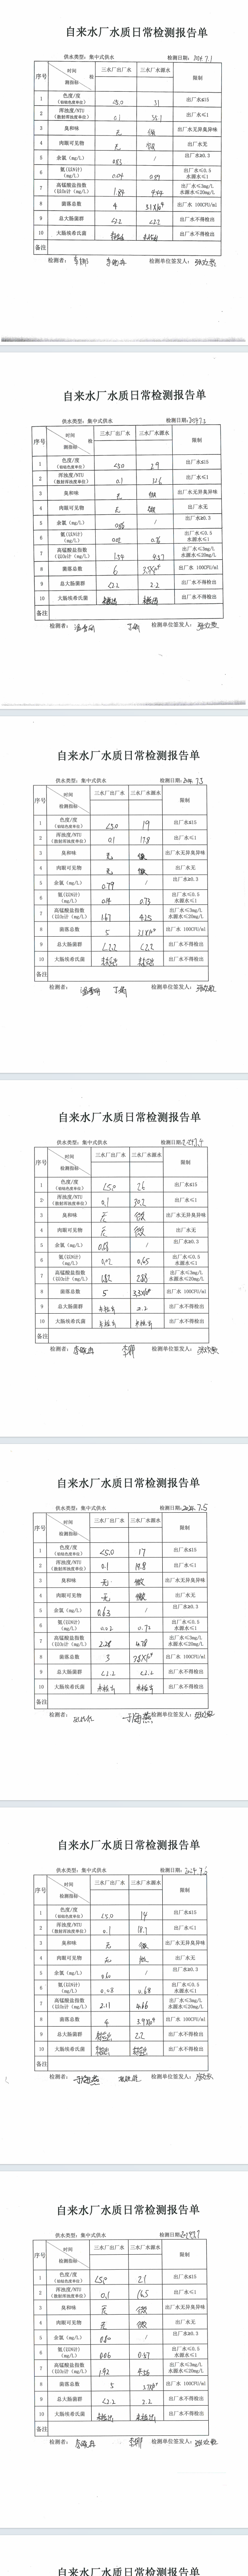 自来水厂水质日常检测报告单
供水类型：集中式供水 检测日期：2024.7.1
序号 时间 检测指标 三水厂出厂水 三水厂水源水 限制
1 色度/度（铂钴色度单位） <5.0 31 出厂水≤15
2 浑浊度/NTU（散射浑浊度单位） 0.1 35.1 出厂水≤1
3 臭和味 无 微 出厂水无异臭异味
4 肉眼可见物 无 微 出厂水无
5 余氯（mg/L） 0.83 / 出厂水≥0.3
6 氨(以N计)（mg/L） 0.04 0.89 出厂水≤0.5 水源水≤1
7 高锰酸盐指数（以O₂计（mg/L） 1.84 4.44 出厂水≤3mg/L 水源水≤20mg/L
8 菌落总数 4 出厂水 100CFU/ml
9 总大肠菌群 <2.2 <2.2 出厂水不得检出
10 大肠埃希氏菌 未检出 未检出 出厂水不得检出
备注
检测者： 检测单位签发人：
自来水厂水质日常检测报告单
供水类型：集中式供水 检测日期：2024.7.2
序号 时间 检测指标 三水厂出厂水 三水厂水源水 限制
1 色度/度（铂钴色度单位） <5.0 29 出厂水≤15
2 浑浊度/NTU（散射浑浊度单位） 0.1 出厂水≤1
3 臭和味 无 微 出厂水无异臭异味
4 肉眼可见物 无 微 出厂水无
5 余氯（mg/L） / 出厂水≥0.3
6 氨(以N计)（mg/L） 出厂水≤0.5 水源水≤1
7 高锰酸盐指数（以O₂计（mg/L） 4.37 出厂水≤3mg/L 水源水≤20mg/L
8 菌落总数 6 出厂水 100CFU/ml
9 总大肠菌群 <2.2 2.2 出厂水不得检出
10 大肠埃希氏菌 未检出 未检出 出厂水不得检出
备注
检测者： 检测单位签发人：
自来水厂水质日常检测报告单
供水类型：集中式供水 检测日期：2024.7.3
序号 时间 检测指标 三水厂出厂水 三水厂水源水 限制
1 色度/度（铂钴色度单位） <5.0 19 出厂水≤15
2 浑浊度/NTU（散射浑浊度单位） 0.1 17.8 出厂水≤1
3 臭和味 无 微 出厂水无异臭异味
4 肉眼可见物 无 微 出厂水无
5 余氯（mg/L） 0.79 / 出厂水≥0.3
6 氨(以N计)（mg/L） 0.73 出厂水≤0.5 水源水≤1
7 高锰酸盐指数（以O₂计（mg/L） 1.67 4.25 出厂水≤3mg/L 水源水≤20mg/L
8 菌落总数 5 出厂水 100CFU/ml
9 总大肠菌群 <2.2 <2.2 出厂水不得检出
10 大肠埃希氏菌 未检出 未检出 出厂水不得检出
备注
检测者： 检测单位签发人：
自来水厂水质日常检测报告单
供水类型：集中式供水 检测日期：
序号 时间 检测指标 三水厂出厂水 三水厂水源水 限制
1 色度/度（铂钴色度单位） <5.0 26 出厂水≤15
2 浑浊度/NTU（散射浑浊度单位） 0.1 20.2 出厂水≤1
3 臭和味 无 微 出厂水无异臭异味
4 肉眼可见物 无 微 出厂水无
5 余氯（mg/L） / 出厂水≥0.3
6 氨(以N计)（mg/L） 0.02 0.65 出厂水≤0.5 水源水≤1
7 高锰酸盐指数（以O₂计（mg/L） 出厂水≤3mg/L 水源水≤20mg/L
8 菌落总数 5 出厂水 100CFU/ml
9 总大肠菌群 未检出 2.2 出厂水不得检出
10 大肠埃希氏菌 未检出 未检出 出厂水不得检出
备注
检测者： 检测单位签发人：
自来水厂水质日常检测报告单
供水类型：集中式供水 检测日期：2024.7.5
序号 时间 检测指标 三水厂出厂水 三水厂水源水 限制
1 色度/度（铂钴色度单位） <5.0 17 出厂水≤15
2 浑浊度/NTU（散射浑浊度单位） 0.1 出厂水≤1
3 臭和味 无 微 出厂水无异臭异味
4 肉眼可见物 无 微 出厂水无
5 余氯（mg/L） 0.63 / 出厂水≥0.3
6 氨(以N计)（mg/L） 0.02 出厂水≤0.5 水源水≤1
7 高锰酸盐指数（以O₂计（mg/L） 2.28 4.78 出厂水≤3mg/L 水源水≤20mg/L
8 菌落总数 3 出厂水 100CFU/ml
9 总大肠菌群 <2.2 <2.2 出厂水不得检出
10 大肠埃希氏菌 未检出 未检出 出厂水不得检出
备注
检测者： 检测单位签发人：
自来水厂水质日常检测报告单
供水类型：集中式供水 检测日期：2024.7.6
序号 时间 检测指标 三水厂出厂水 三水厂水源水 限制
1 色度/度（铂钴色度单位） <5.0 14 出厂水≤15
2 浑浊度/NTU（散射浑浊度单位） 0.1 18.7 出厂水≤1
3 臭和味 无 微 出厂水无异臭异味
4 肉眼可见物 无 微 出厂水无
5 余氯（mg/L） 0.60 / 出厂水≥0.3
6 氨(以N计)（mg/L） 0.68 出厂水≤0.5 水源水≤1
7 高锰酸盐指数（以O₂计（mg/L） 2.11 4.66 出厂水≤3mg/L 水源水≤20mg/L
8 菌落总数 4 出厂水 100CFU/ml
9 总大肠菌群 未检出 2.2 出厂水不得检出
10 大肠埃希氏菌 未检出 未检出 出厂水不得检出
备注
检测者： 检测单位签发人：
自来水厂水质日常检测报告单
供水类型：集中式供水 检测日期：
序号 时间 检测指标 三水厂出厂水 三水厂水源水 限制
1 色度/度（铂钴色度单位） <5.0 21 出厂水≤15
2 浑浊度/NTU（散射浑浊度单位） 0.1 16.5 出厂水≤1
3 臭和味 无 微 出厂水无异臭异味
4 肉眼可见物 无 微 出厂水无
5 余氯（mg/L） 0.80 / 出厂水≥0.3
6 氨(以N计)（mg/L） 0.06 出厂水≤0.5 水源水≤1
7 高锰酸盐指数（以O₂计（mg/L） 1.92 出厂水≤3mg/L 水源水≤20mg/L
8 菌落总数 5 出厂水 100CFU/ml
9 总大肠菌群 <2.2 2.2 出厂水不得检出
10 大肠埃希氏菌 未检出 未检出 出厂水不得检出
备注
检测者： 检测单位签发人：
自来水厂水质日常检测报告单